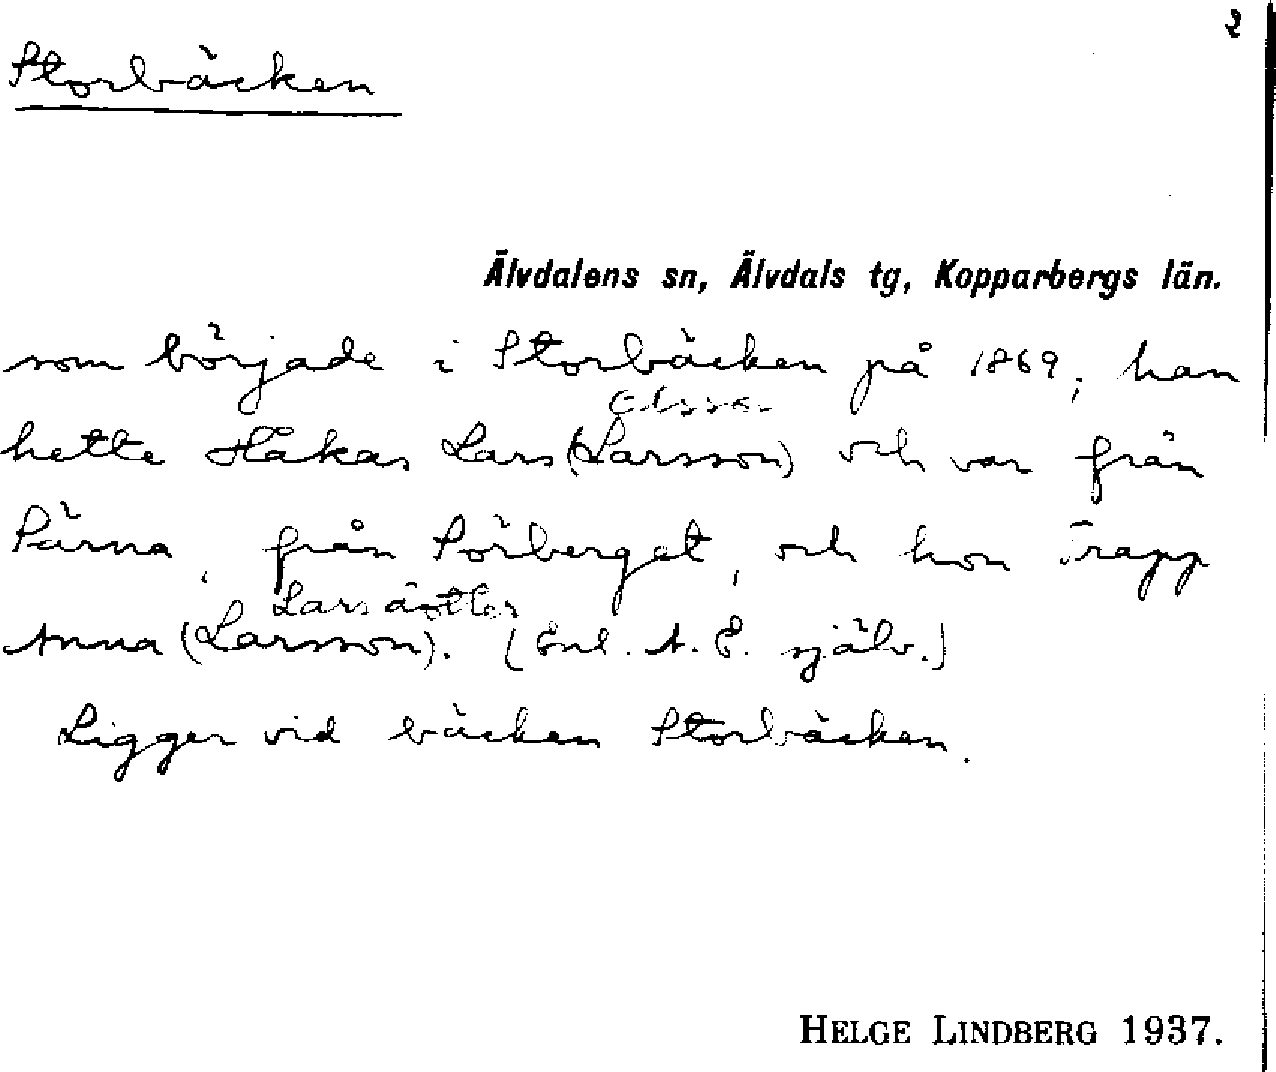 2
Storbäcken
Älvdalens sn, Älvdals tg, Kopparbergs län.
som började i Storbäcken på 1869; han
Olsson
hette Håkas Lars (Larsson) och var från
Särna, från Sörberget, och hon Trapp
Larsdotter
Anna (Larsson). (Enl. A. E. själv.)
Ligger vid bäcken Storbäcken.
HELGE LINDBERG 1937.